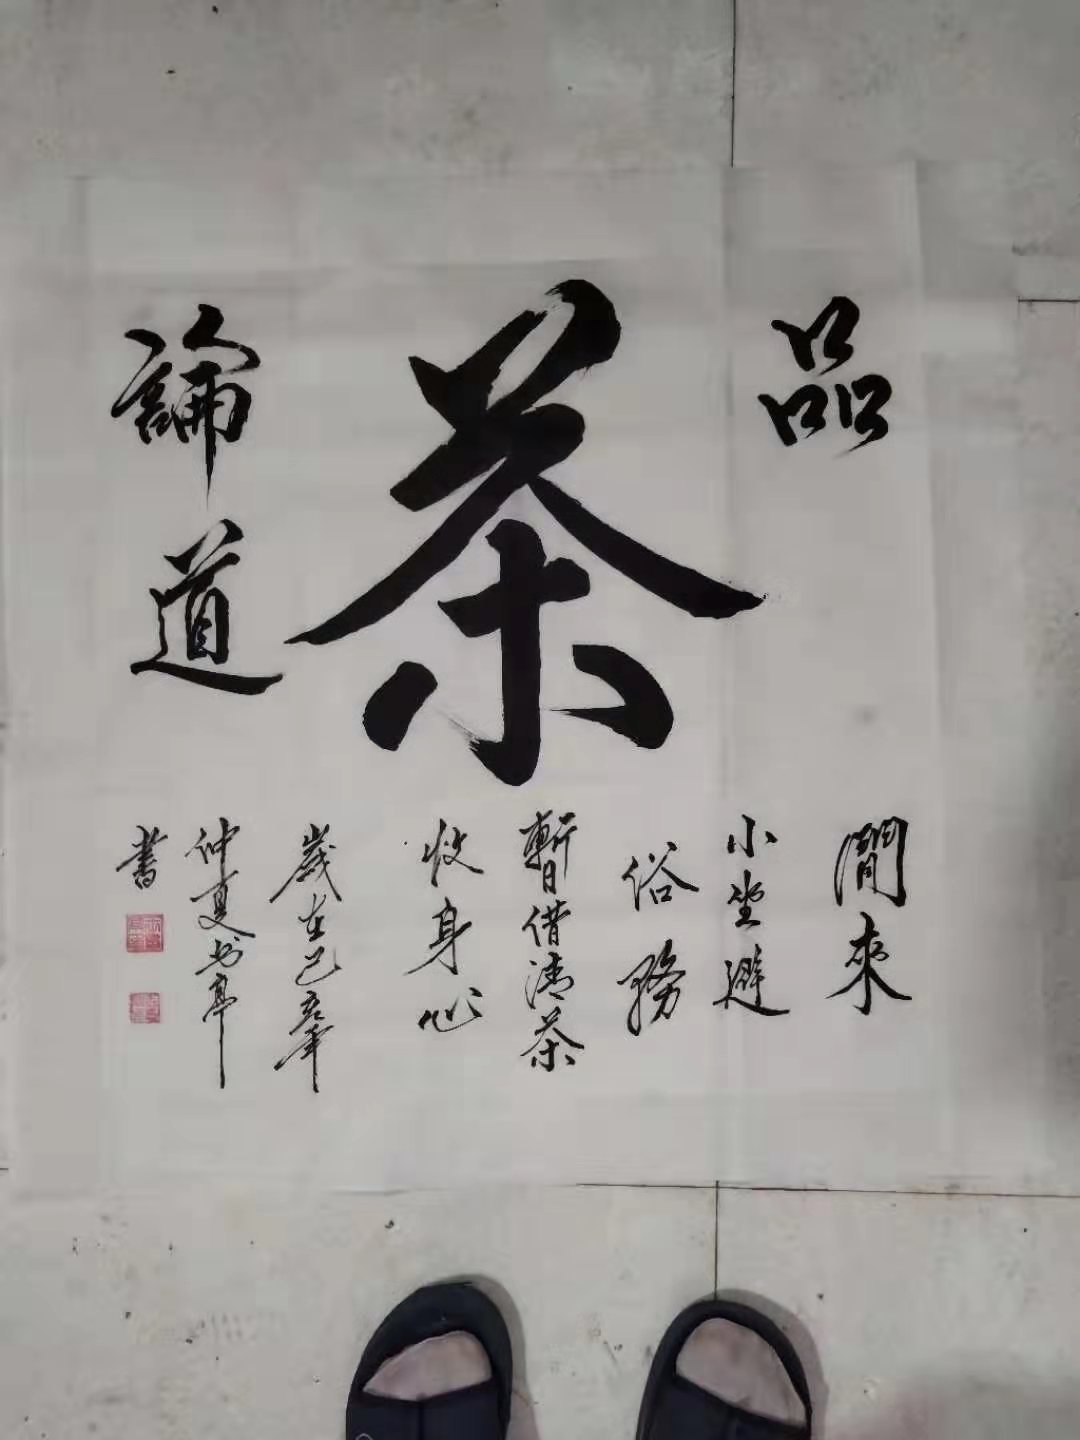 品
茶
論道
閒來
小坐避
俗務
暫借清茶
收身心
歲在己亥年
仲夏
書